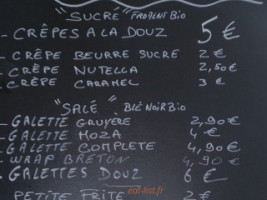 "SUCRÉ" FROMENT Bio
- CRÊPES A LA DOUZ 5 €
- CRÊPE BEURRE SUCRE 2 €
- CRÊPE NUTELLA 2,50 €
- CRÊPE CARAMEL 3 €
"SALÉ" BLÉ NOIR Bio
- GALETTE GRUYÈRE 2,90 €
- GALETTE MOZA 4 €
- GALETTE COMPLETE 4,90 €
- WRAP BRETON 4,90 €
- GALETTES DOUZ 6 €
PETITE FRITE 2 €